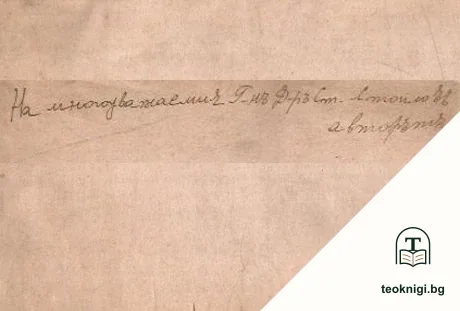 На многоуважаемия Г-нъ Д-ръ Ст. Стоиловъ
авторътъ
T
teoknigi.bg